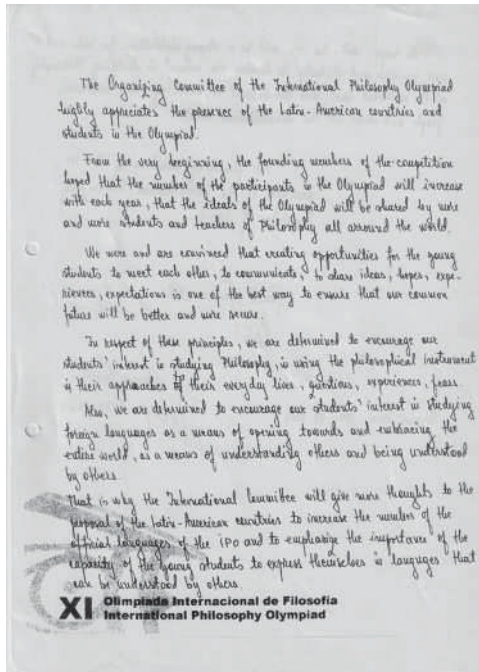 The Organizing Committee of the International Philosophy Olympiad
highly appreciates the presence of the Latin-American countries and
students in the Olympiad.
From the very beginning, the founding members of the competition
hoped that the number of the participants in the Olympiad will increase
with each year, that the ideals of the Olympiad will be shared by more
and more students and teachers of Philosophy all arround the world.
We were and are convinced that creating opportunities for the young
students to meet each other, to communicate, to share ideas, hopes, expe-
riences, expectations is one of the best way to ensure that our common
future will be better and more secure.
In respect of these principles, we are determined to encourage our
students' interest in studying Philosophy, in using the philosophical instrument
in their approaches of their everyday lives, questions, experiences, fears.
Also, we are determined to encourage our students' interest in studying
foreign languages as a means of opening towards and embracing the
entire world, as a means of understanding others and being understood
by others.
That is why the International Committee will give more thoughts to the
proposal of the Latin-American countries to increase the number of the
official languages of the IPO and to emphasize the importance of the
capacity of the young students to express themselves in languges that
can be understood by others.
XI Olimpiada Internacional de Filosofía
International Philosophy Olympiad